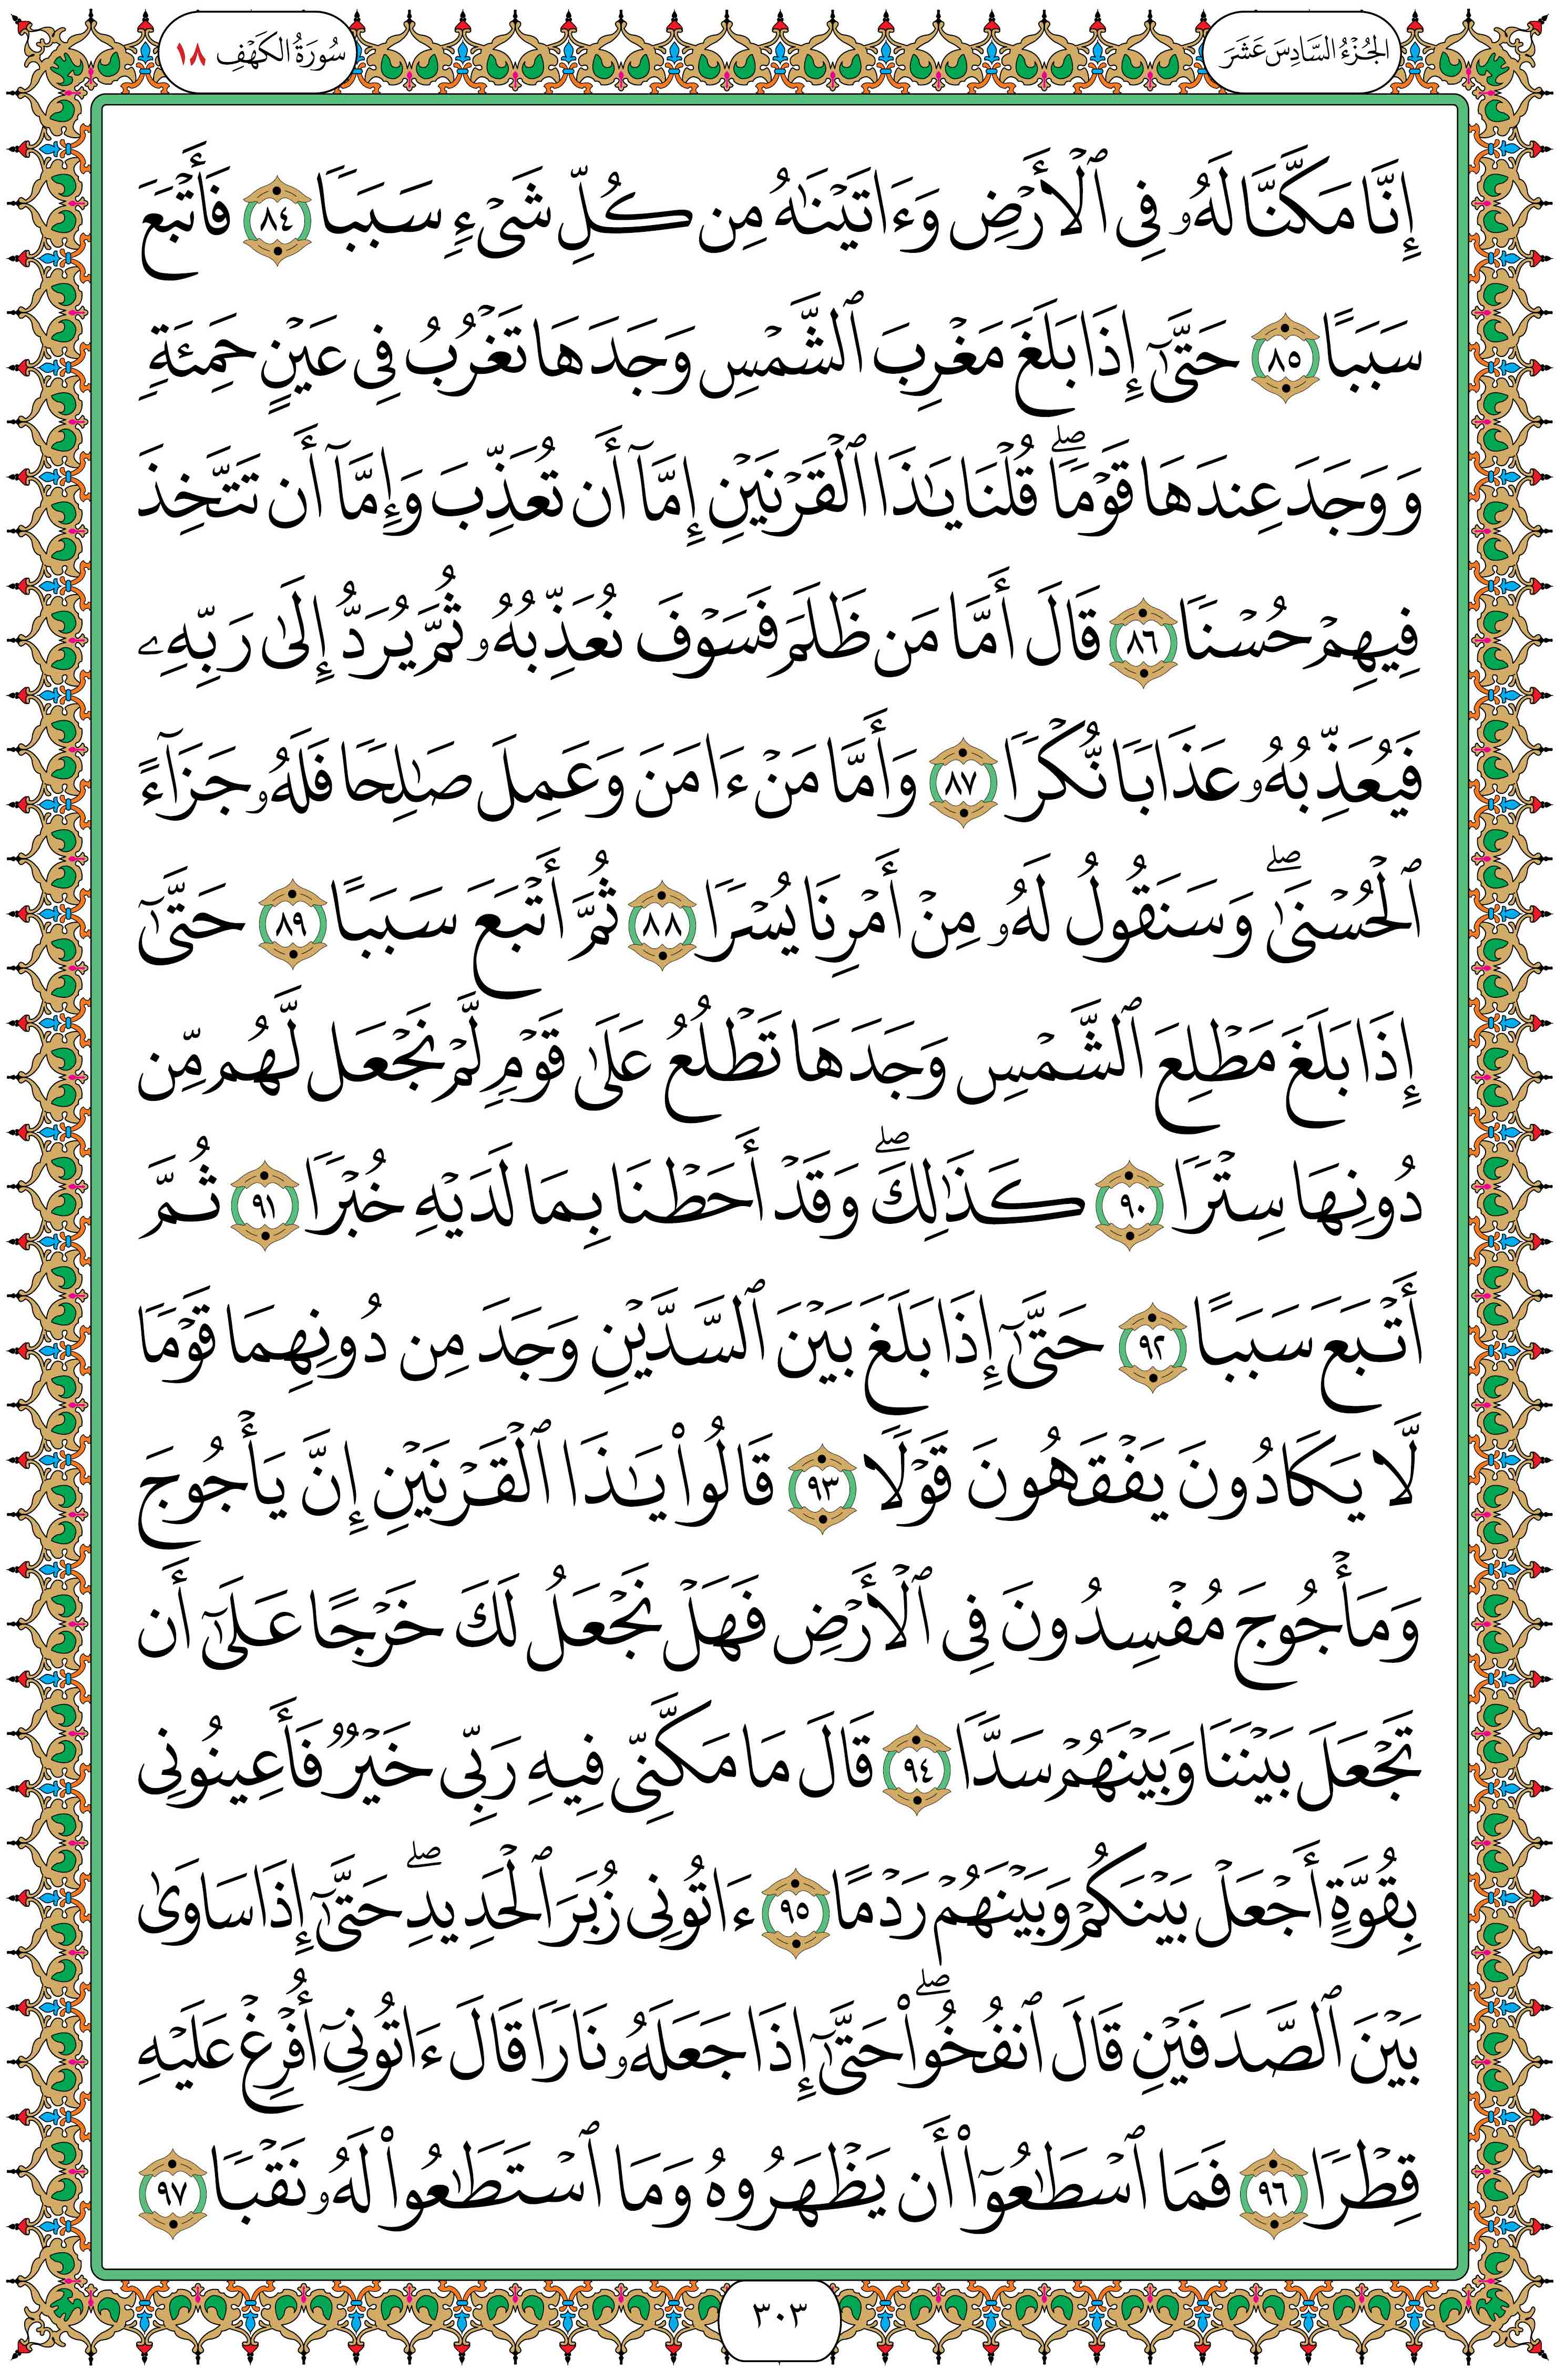 الجُزْءُ السَّادِسَ عَشَرَ
سُورَةُ الكَهْفِ ١٨
إِنَّا مَكَّنَّا لَهُۥ فِى ٱلْأَرْضِ وَءَاتَيْنَٰهُ مِن كُلِّ شَىْءٍ سَبَبًا ٨٤ فَأَتْبَعَ
سَبَبًا ٨٥ حَتَّىٰٓ إِذَا بَلَغَ مَغْرِبَ ٱلشَّمْسِ وَجَدَهَا تَغْرُبُ فِى عَيْنٍ حَمِئَةٍ
وَوَجَدَ عِندَهَا قَوْمًا ۖ قُلْنَا يَٰذَا ٱلْقَرْنَيْنِ إِمَّآ أَن تُعَذِّبَ وَإِمَّآ أَن تَتَّخِذَ
فِيهِمْ حُسْنًا ٨٦ قَالَ أَمَّا مَن ظَلَمَ فَسَوْفَ نُعَذِّبُهُۥ ثُمَّ يُرَدُّ إِلَىٰ رَبِّهِۦ
فَيُعَذِّبُهُۥ عَذَابًا نُّكْرًا ٨٧ وَأَمَّا مَنْ ءَامَنَ وَعَمِلَ صَٰلِحًا فَلَهُۥ جَزَآءً
ٱلْحُسْنَىٰ ۖ وَسَنَقُولُ لَهُۥ مِنْ أَمْرِنَا يُسْرًا ٨٨ ثُمَّ أَتْبَعَ سَبَبًا ٨٩ حَتَّىٰٓ
إِذَا بَلَغَ مَطْلِعَ ٱلشَّمْسِ وَجَدَهَا تَطْلُعُ عَلَىٰ قَوْمٍ لَّمْ نَجْعَل لَّهُم مِّن
دُونِهَا سِتْرًا ٩٠ كَذَٰلِكَ ۖ وَقَدْ أَحَطْنَا بِمَا لَدَيْهِ خُبْرًا ٩١ ثُمَّ
أَتْبَعَ سَبَبًا ٩٢ حَتَّىٰٓ إِذَا بَلَغَ بَيْنَ ٱلسَّدَّيْنِ وَجَدَ مِن دُونِهِمَا قَوْمًا
لَّا يَكَادُونَ يَفْقَهُونَ قَوْلًا ٩٣ قَالُوا۟ يَٰذَا ٱلْقَرْنَيْنِ إِنَّ يَأْجُوجَ
وَمَأْجُوجَ مُفْسِدُونَ فِى ٱلْأَرْضِ فَهَلْ نَجْعَلُ لَكَ خَرْجًا عَلَىٰٓ أَن
تَجْعَلَ بَيْنَنَا وَبَيْنَهُمْ سَدًّا ٩٤ قَالَ مَا مَكَّنِّى فِيهِ رَبِّى خَيْرٌ فَأَعِينُونِى
بِقُوَّةٍ أَجْعَلْ بَيْنَكُمْ وَبَيْنَهُمْ رَدْمًا ٩٥ ءَاتُونِى زُبَرَ ٱلْحَدِيدِ ۖ حَتَّىٰٓ إِذَا سَاوَىٰ
بَيْنَ ٱلصَّدَفَيْنِ قَالَ ٱنفُخُوا۟ ۖ حَتَّىٰٓ إِذَا جَعَلَهُۥ نَارًا قَالَ ءَاتُونِىٓ أُفْرِغْ عَلَيْهِ
قِطْرًا ٩٦ فَمَا ٱسْطَٰعُوٓا۟ أَن يَظْهَرُوهُ وَمَا ٱسْتَطَٰعُوا۟ لَهُۥ نَقْبًا ٩٧
٣٠٣